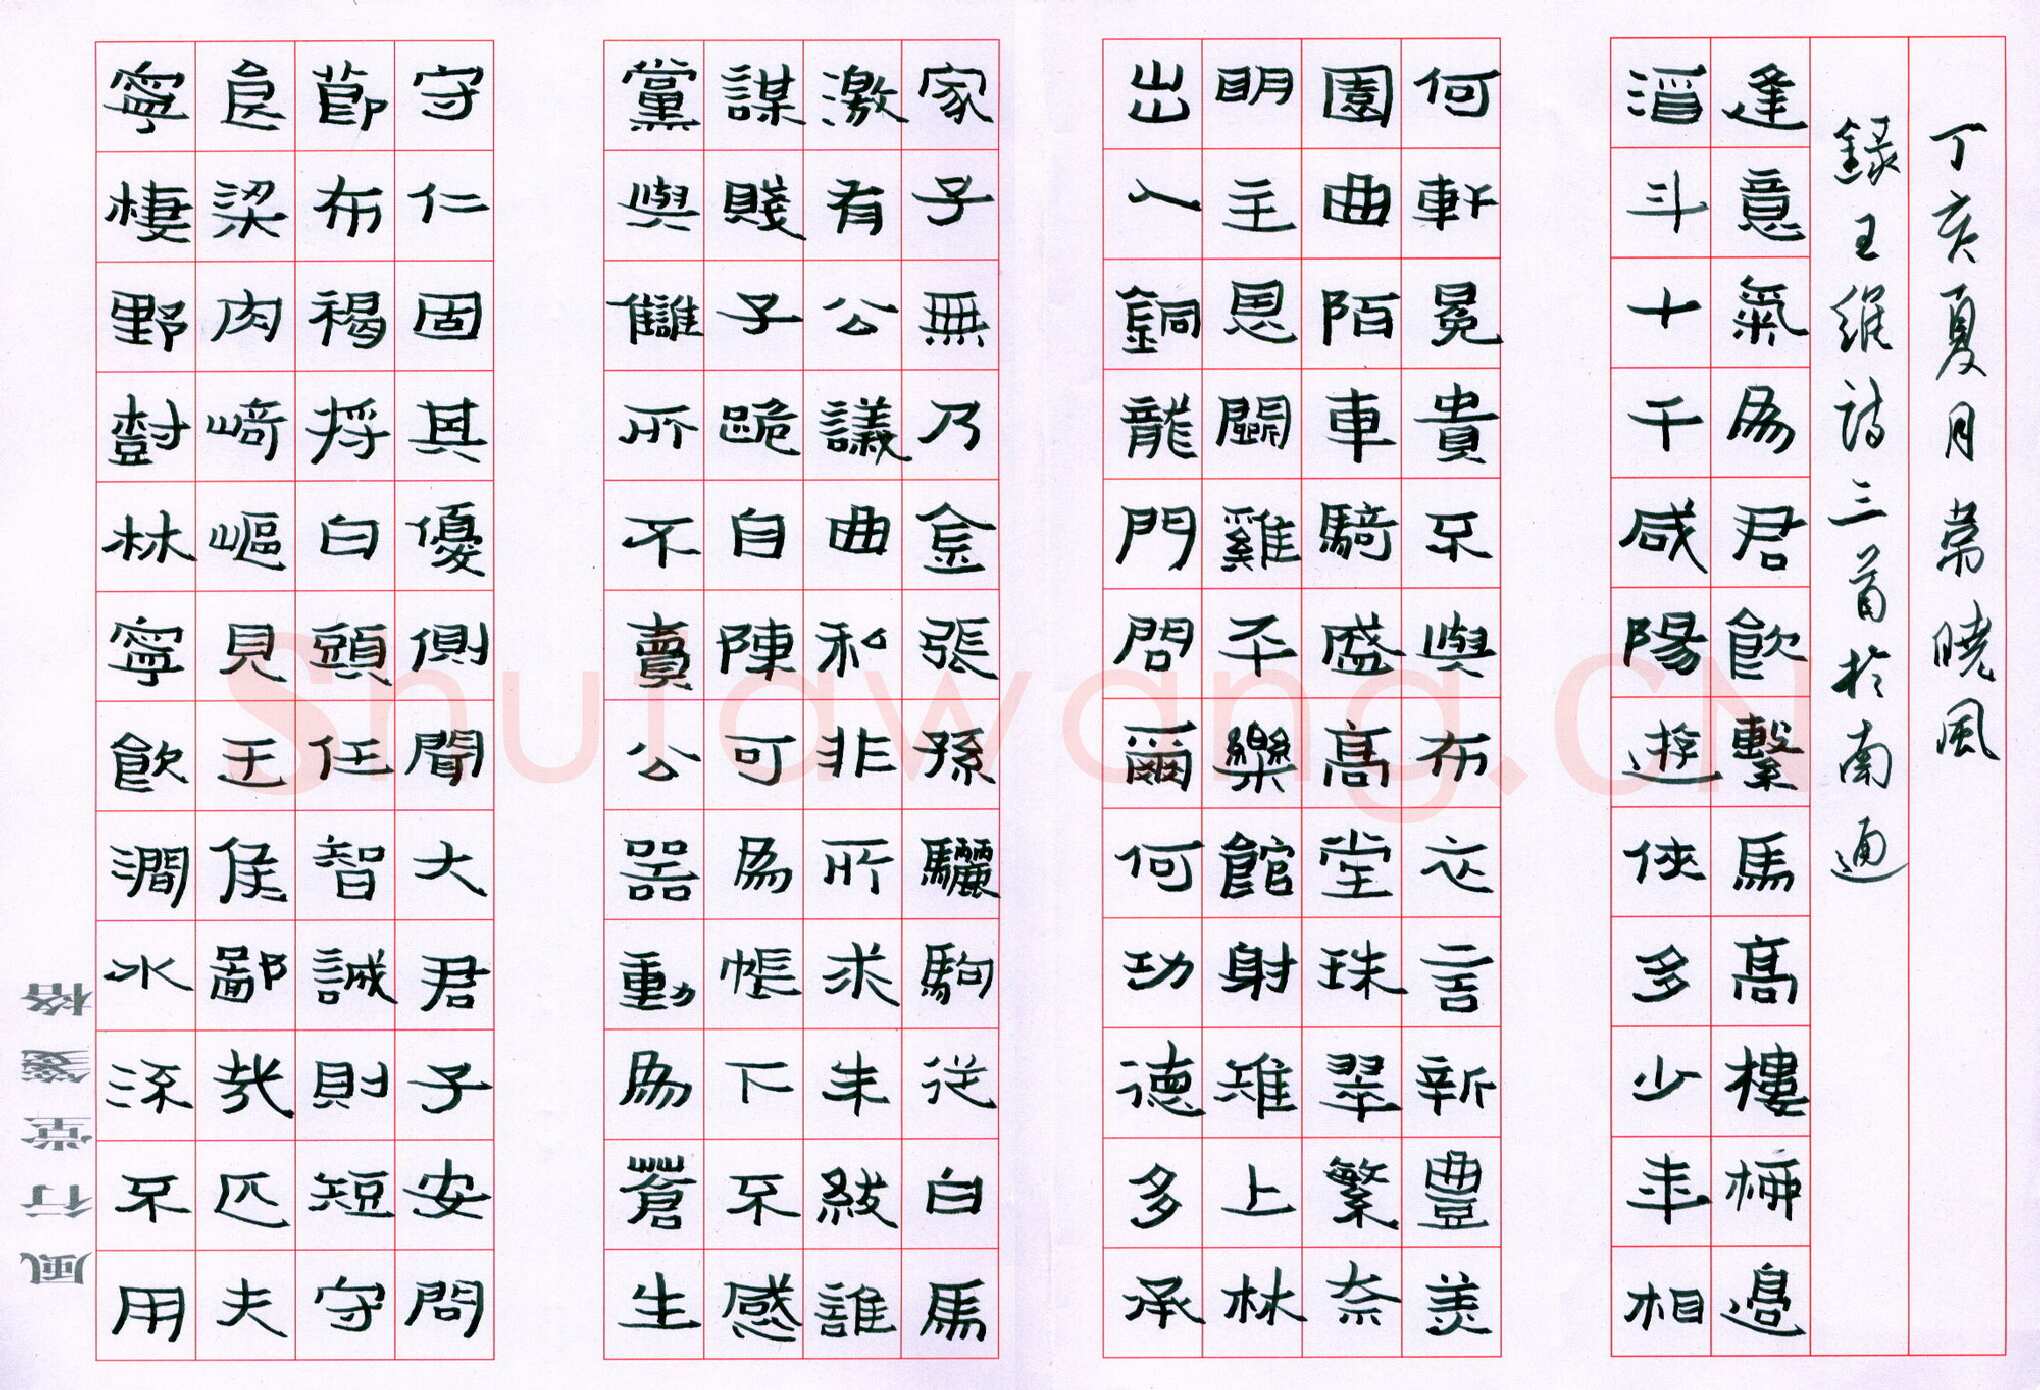 寧棲野樹林寧飲澗水流不用
食梁肉崎嶇見王侯鄙哉匹夫
節布褐捋白頭任智誠則短守
守仁固其優側聞大君子安問
黨與讎所不賣公器動為蒼生
謀賤子跪自陳可為帳下不感
激有公議曲私非所求朱紱誰
家子無乃金張孫驪駒從白馬
出入銅龍門問爾何功德多承
明主恩鬭雞平樂館射雉上林
園曲陌車騎盛高堂珠翠繁奈
何軒冕貴不與布衣言新豐美
酒斗十千咸陽遊俠多少年相
逢意氣為君飲繫馬高樓柳邊
錄王維詩三首於南通
丁亥夏月常曉風
風行堂箋格
Shufawang.CN